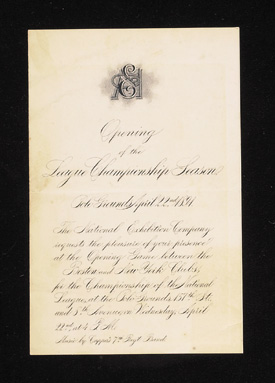 Opening
of the
League Championship Season
Polo Grounds, April 22nd 1891
The National Exhibition Company
requests the pleasure of your presence
at the Opening Game between the
Boston and New York Clubs,
for the Championship of the National
League, at the Polo Grounds, 157th St.
and 8th Avenue, on Wednesday, April
22nd at 4 P.M.
Music by Cappa's 7th Regt. Band.